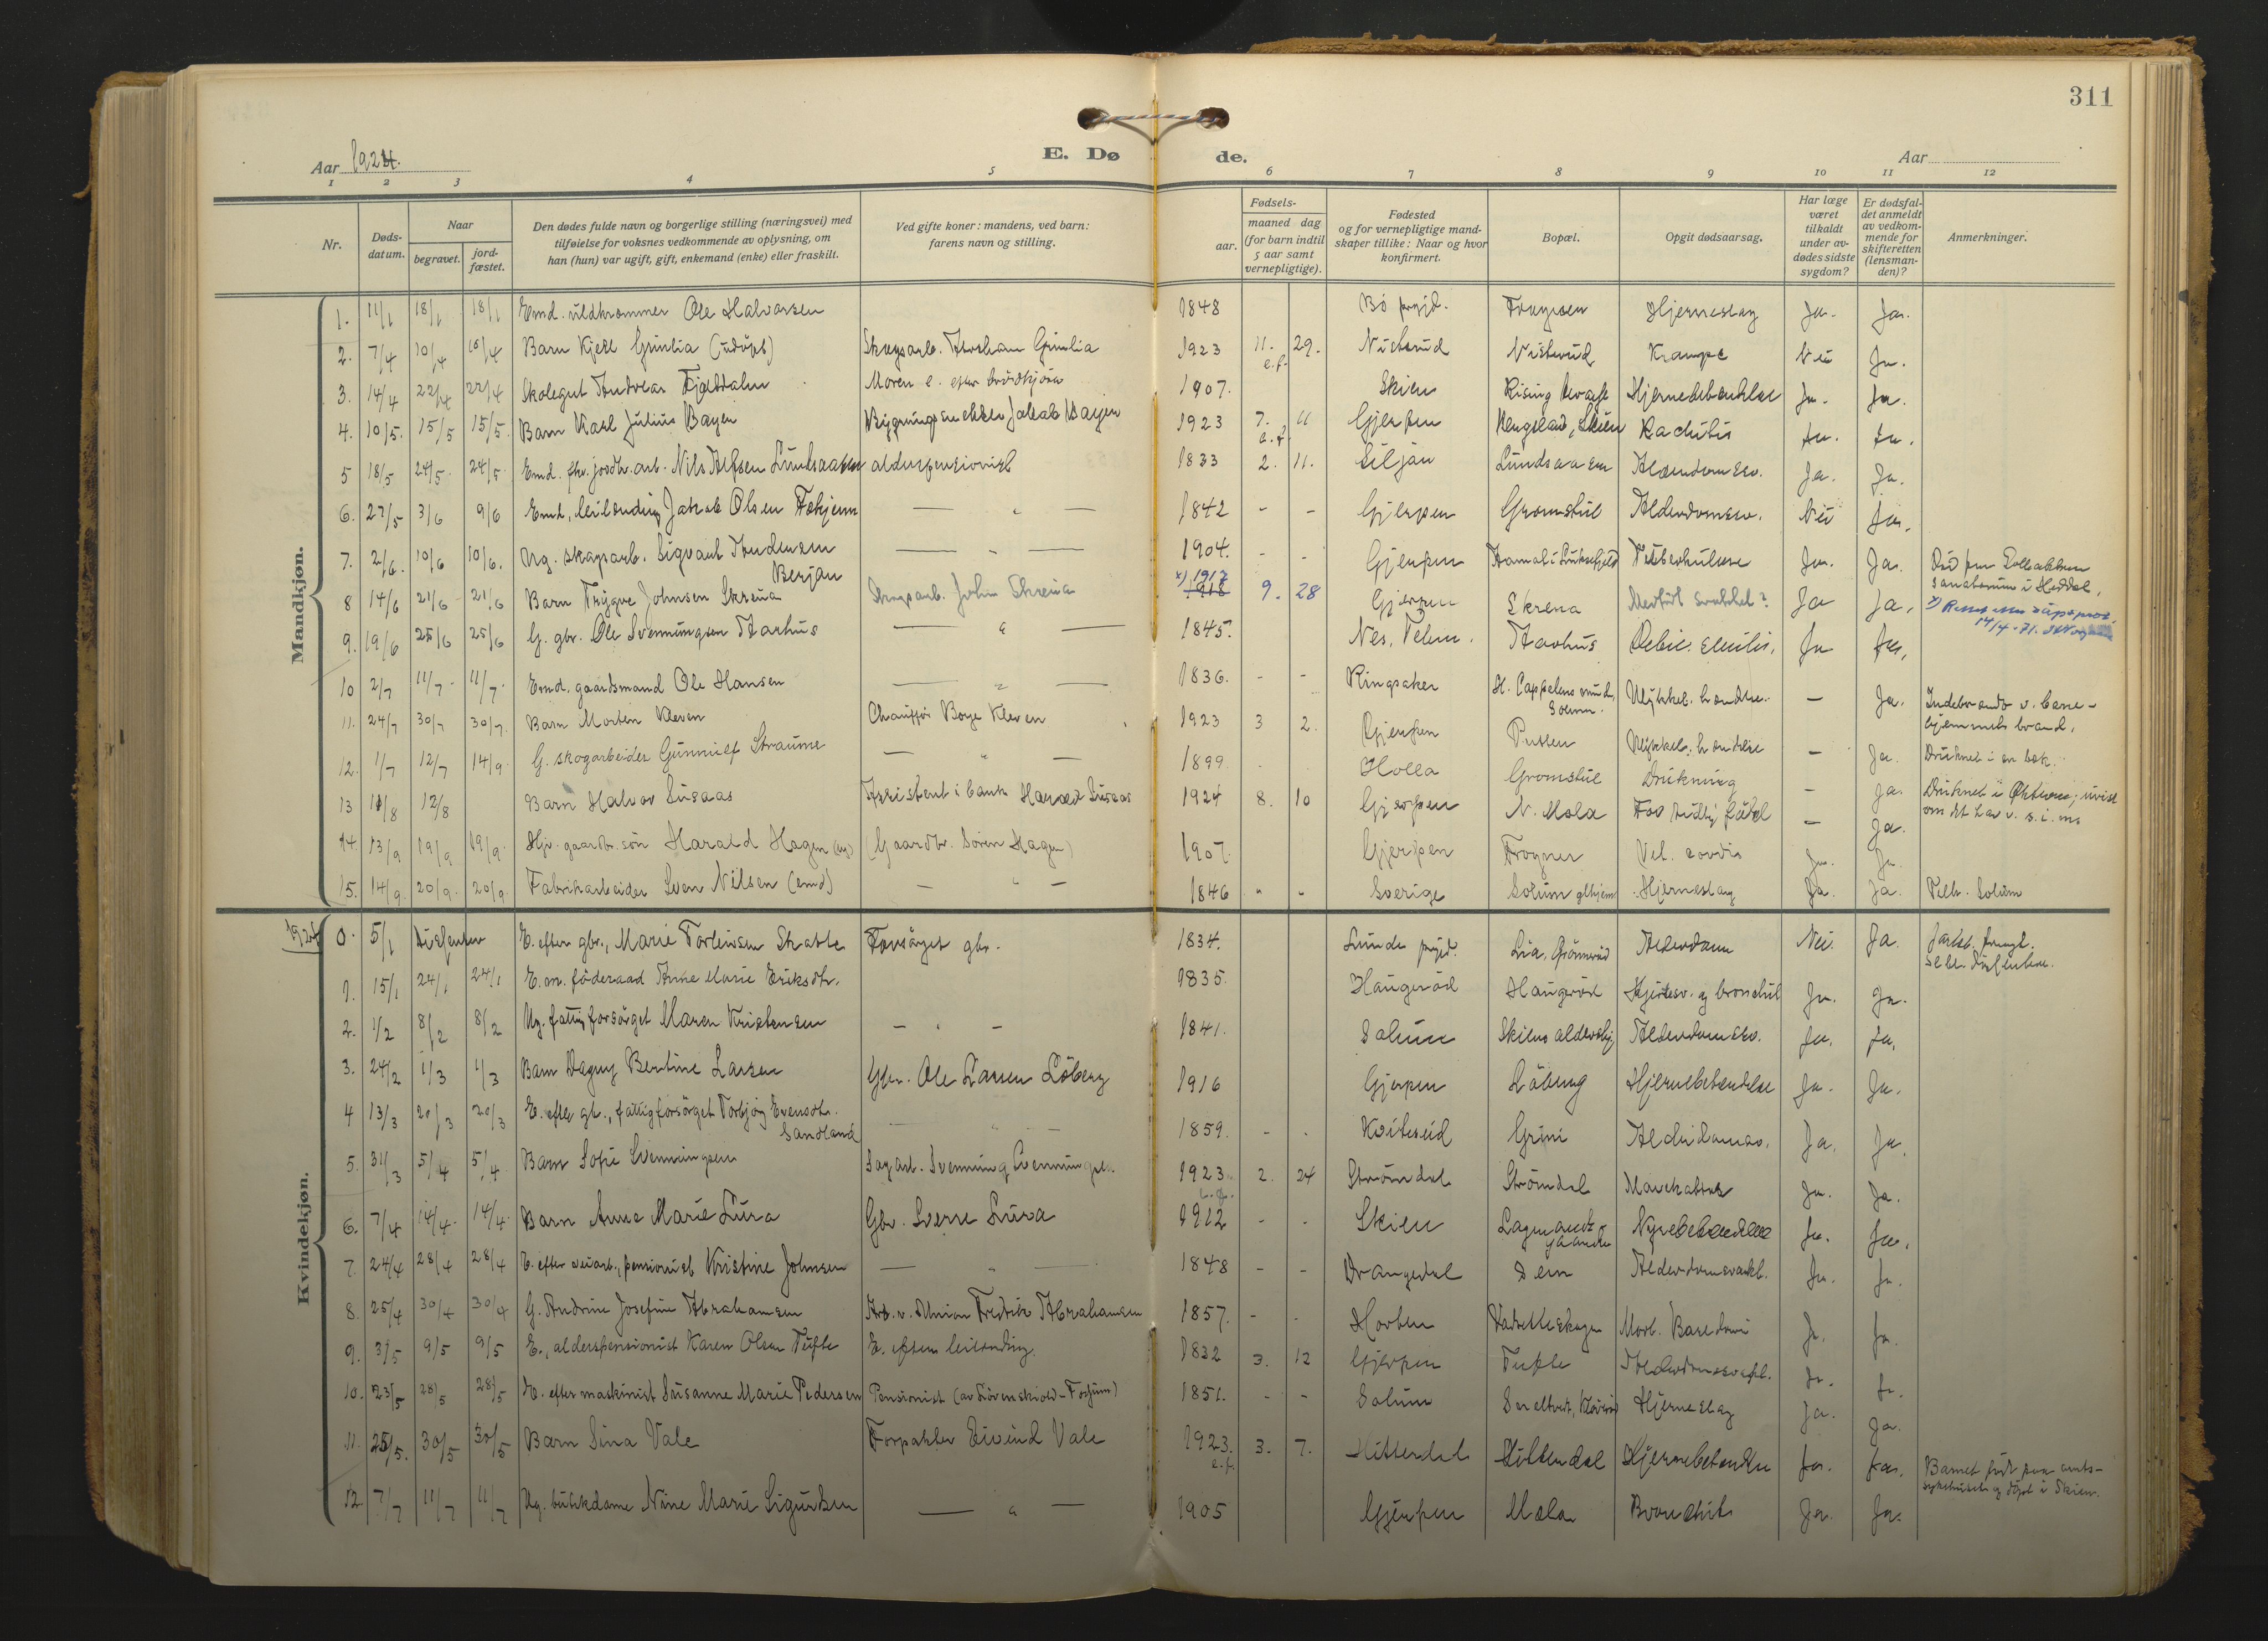 311
Aar 1924.
E. Dø de.
Aar
1 2 3 4 5 6 7 8 9 10 11 12
Nr.
Døds-
datum.
Naar
begravet.
jord-
fæstet.
Den dødes fulde navn og borgerlige stilling (næringsvei) med
tilføielse for voksnes vedkommende av oplysning, om
han (hun) var ugift, gift, enkemand (enke) eller fraskilt.
Ved gifte koner: mandens, ved barn:
farens navn og stilling.
Fødsels-
aar.
maaned dag
(for barn indtil
5 aar samt
vernepligtige).
Fødested
og for vernepligtige mand-
skaper tillike: Naar og hvor
konfirmert.
Bopæl.
Opgit dødsaarsag.
Har læge
været
tilkaldt
under av-
dødes sidste
sygdom?
Er dødsfal-
det anmeldt
av vedkom-
mende for
skifteretten
(lensman-
den)?
Anmerkninger.
Mandkjøn.
1. 11/1 18/1 18/1 Emd. Ole Halvorsen 1848 Bö prgjd. Hjerneslag Ja. Ja.
2. 7/4 10/4 10/4 Barn Kjell Grinlia (udöpt) Skogsarb. Abraham Grinlia 1923 11. 29. Nisterud Nisterud Krampe Nei Ja.
e.f.
3. 14/4 22/4 22/4 Skolegut Andreas Fjelldalen Moren e. efter 1907. Skien Rising Hjernebetændelse Ja. Ja.
4. 10/5. 15/5 15/5. Barn Karl Julius Bayen Bygningssnekker Jakob Bayen 1923 7. 11 Gjerpen Skien Rachitis Ja. Ja.
e.f.
5 18/5 24/5. 24/5. Emd. fhv. jordbr. arb. Nils Alfsen Lundsaasen alderspensionist 1833 2. 11. Siljan Lundsaasen Alderdomssv. Ja. Ja.
6. 27/5 3/6 9/6 Emd. leilending Jakob Olsen — " — 1842 - - Gjerpen Gromstul Alderdomssv. Nei Ja.
7. 2/6. 10/6 10/6. Ug. skogsarb. Sigvart Andersen — " — 1904. - - Gjerpen Tuberkulose Ja. Ja. Död paa
Berjan sanatorium i Heddal.
x) 1917
8 14/6 21/6 21/6 Barn Trygve Johnsen Skreua Skogsarb. John Skreua 1918 9. 28 Gjerpen Skreua Medfödt svakhet? Ja Ja.
14/4-71.
9. 19/6 25/6 25/6 G. gbr. Ole Svenningsen Aarhus — " — 1845. Nes, Telem. Aarhus Ja Ja.
10 2/7 11/7. 11/7. Emd. gaardmand Ole Hansen — " — 1836. - - Ringsaker H. Cappelens minde, Ulykkel. hændelse. — Ja. Indebrændt v. barne-
Solum. hjemmets brand.
11. 24/7 30/7 30/7. Barn Morten Kleven Chauffør Borge Kleven 1923 3 2. Gjerpen Putten Ulykkel. hændelse — Ja. Druknet i en bæk.
12. 1/7 12/7 14/9. G. skogarbeider Gunnulf Straume — " — 1899. Holla Gromstul Drukning — Ja. Druknet i
13 11/8 12/8 Barn Halvor Lusaas Assistent i bank Harald Lusaas 1924 8. 10 Gjerpen N. Mæla For tidlig födsel — Ja.
14. 13/9 19/9 19/9. Hjv. gaardbr. sön Harald Hagen (ug) (Gaardbr. Sören Hagen) 1907. Gjerpen Frogner Vit. cordis Ja. Ja.
15. 14/9. 20/9. 20/9 Fabrikarbeider Sven Nilsen (emd) — " — 1846 " " Sverige Solum glhjem Hjerneslag Ja. Ja. Tilh. Solum
Kvindekjøn.
1924 0. 5/1 Dissenter E. efter gbr., Marie Torleivsen Skatte Forsörget gbr. 1834. Lunde prgjd. Lia, Alderdom Nei. Ja.
1. 15/1 24/1 24/1 E. m. föderaad Anne Marie Eriksdtr. 1835. Haugeröd Haugeröd Hjertesv. og bronchit Ja. Ja.
2. 1/2 8/2 8/2 Ug. fattigforsörget Maren Kristensen — " — 1841. Solum Skiens aldershj. Alderdomssv. Ja. Ja.
3. 24/2 1/3 1/3 Barn Dagny Bertine Larsen Gbr. Ole Larsen Löberg 1916 Gjerpen Löberg Hjernebetændelse Ja. Ja.
4 13/3 20/3 20/3 E. efter gb., fattigforsörget Torbjörg Evensdtr. — " — 1859. - - Kviteseid Grini Alderdomssv. Ja. Ja.
Sandland
5. 31/3 5/4 5/4. Barn Sofie Svenningsen Sagarb. Svenning Svenningsen. 1923 2. 24 Strömdal Strömdal Ja. Ja.
6. 7/4 14/4. 14/4. Barn Anne Marie Lura Gbr. Sverre Lura 1912 - - Skien Nyrebetændelse Ja. Ja.
7. 24/4 28/4 28/4 E. efter pensionist Kristine Johnsen — " — 1848 - - Drangedal Sem Alderdomssvakh. Ja. Ja.
8. 25/4 30/4 30/4 G. Andrine Josefine Abrahamsen Arb. v. Union Fredrik Abrahamsen 1857. - - Morb. Basedowi Ja. Ja.
9. 3/5 9/5 9/5 E., alderspensionist Karen Olsen Tufte E. efter leilending. 1832 3. 12 Gjerpen Tufte Alderdomssvakh. Ja. Ja.
10. 23/5 28/5 28/5 E. efter maskinist Susanne Marie Pedersen Pensionist (av Lövenskiold-Fossum) 1851. - - Solum Hjerneslag Ja. Ja.
11. 25/5. 30/5 30/5 Barn Sina Vale Forpakter Eivind Vale 1923. 3. 7. Hitterdal Hitterdal Hjernebetændelse Ja. Ja. Barnet födt paa amts-
e.f. sykehuset og döpt i Skien.
12. 7/7 11/7 11/7 Ug. butikdame Nine Marie Sigurdsen — " — 1905 Gjerpen Mæla Bronchit Ja. Ja.